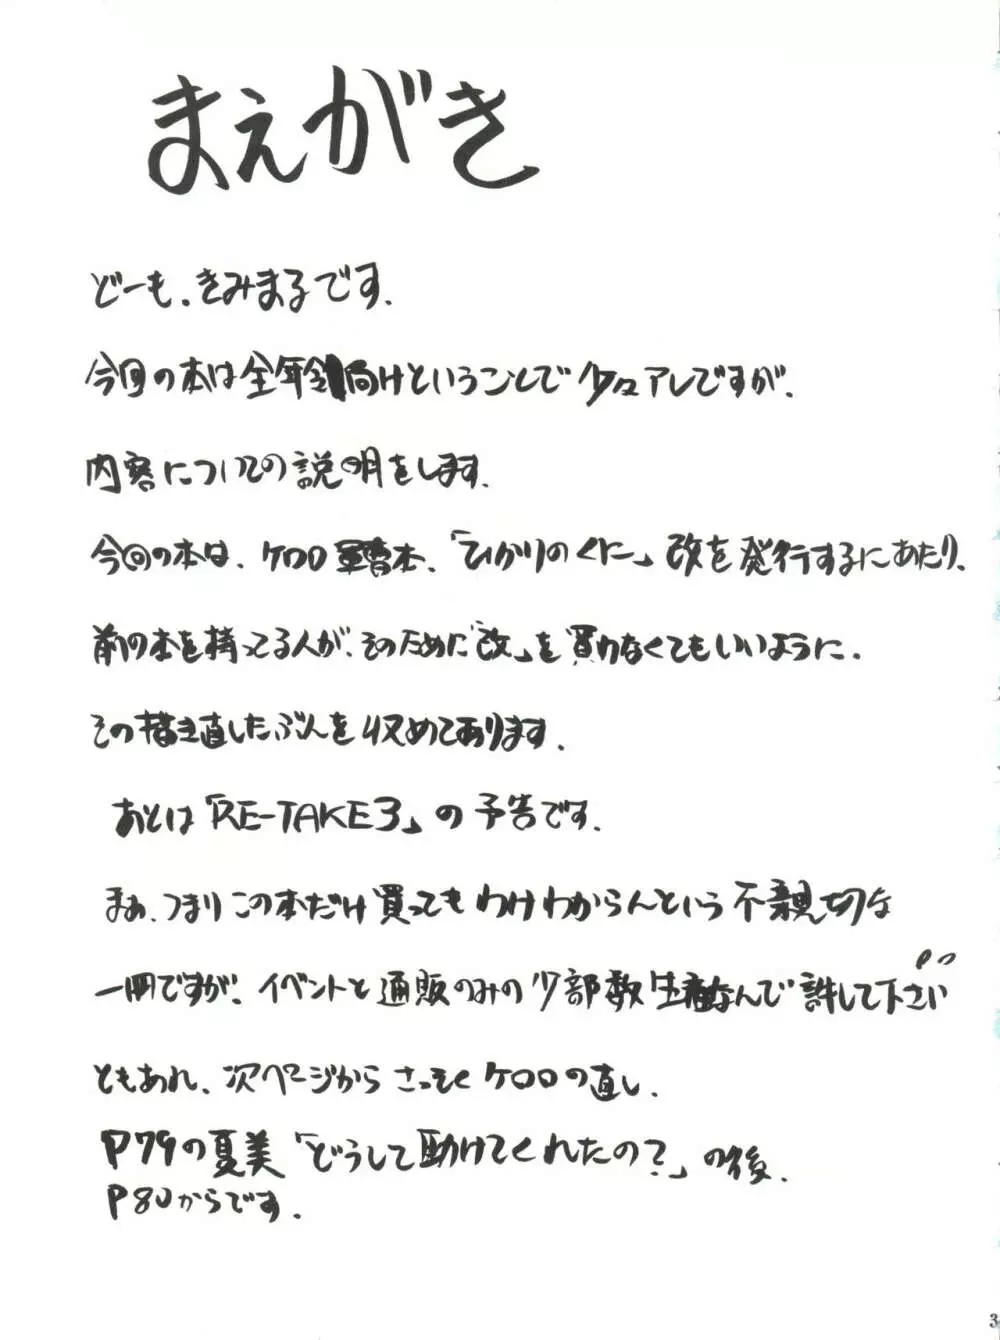 まえがき
どーも、きみまるです。
今回の本は全年令向けということで少々アレですが、
内容についての説明をします。
今回の本は、ケロロ軍曹本、「ひかりのくに」改を発行するにあたり、
前の本を持ってる人が、そのために「改」を買わなくてもいいように、
その描き直したぶんを収めてあります。
あとは「RE-TAKE3」の予告です。
まぁ、つまりこの本だけ買ってもわけわからんという不親切な
一冊ですが、イベントと通販のみの少部数生産なんで許して下さい
ともあれ、次ページからさっそくケロロの直し、
P79の夏美「どうして助けてくれたの？」の後、
P80からです。
3